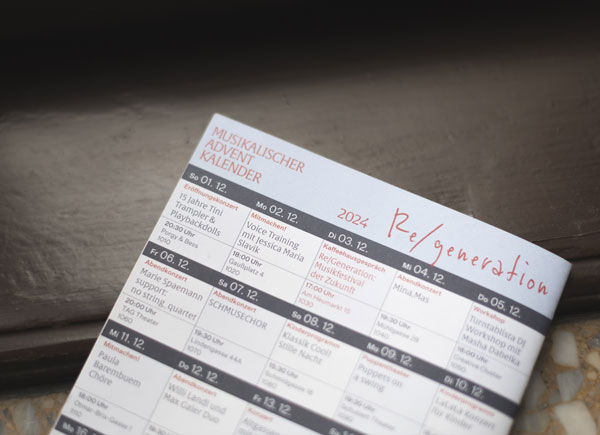 MUSIKALISCHER
ADVENT
KALENDER
2024
Re/generation
So 01. 12.
Eröffnungskonzert
15 Jahre Tini
Trampler &
Playbackdolls
20:30 Uhr
Porgy & Bess
1010
Mo 02. 12.
Mitmachen!
Voice Training
mit Jessica Maria
Slavik
18:00 Uhr
Gaußplatz 4
1020
Di 03. 12.
Kaffeehausgespräch
Re/Generation:
Musikfestival
der Zukunft
17:00 Uhr
Am Heumarkt 15
1030
Mi 04. 12.
Abendkonzert
Mina.Mas
19:30 Uhr
Mühlgasse 28
1040
Do 05. 12.
Workshop
Turntablista DJ
Workshop mit
Masha Dabelka
18:00 Uhr
Fr 06. 12.
Abendkonzert
Marie Spaemann
support:
no string. quartet
20:00 Uhr
TAG Theater
1060
Sa 07. 12.
Abendkonzert
SCHMUSECHOR
19:30 Uhr
Lindengasse 44A
1070
So 08. 12.
Kinderprogramm
Klassik Cool!
Stille Nacht
1080
Mo 09. 12.
Puppentheater
Puppets on
a swing
1090
Di 10. 12.
Kinderprogramm
LaLaLa Konzert
für Kinder
Mi 11. 12.
Mitmachen!
Paula
Barembuem
Chöre
18:00 Uhr
Do 12. 12.
Abendkonzert
Willi Landl und
Max Gaier Duo
Fr 13. 12.
Konzert